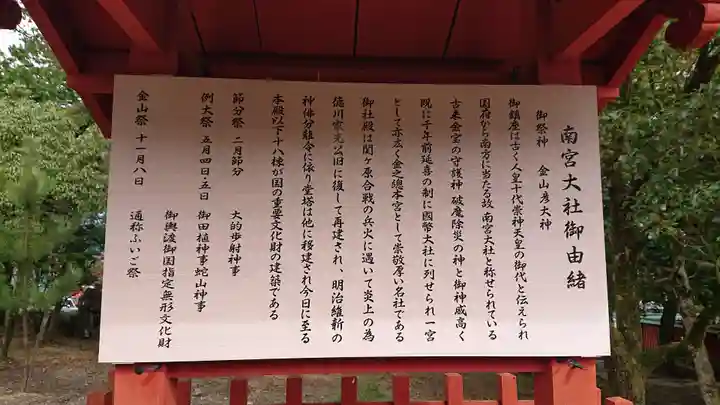 南宮大社御由緒
御祭神　金山彦大神
御鎮座は古く人皇十代崇神天皇の御代と伝えられ
国府から南方に当たる故 南宮大社と称せられている
古来金宝の守護神 破魔除災の神と御神威高く
既に千年前延喜の制に國幣大社に列せられ一宮
として亦広く金之總本宮として崇敬厚い名社である
御社殿は関ヶ原合戦の兵火に遇いて炎上の為
徳川家光公旧に復して再建され、明治維新の
神佛分離令に依り堂塔は他に移建され今日に至る
本殿以下十八棟が国の重要文化財の建築である
節分祭 二月節分　大的歩射神事
例大祭 五月四日・五日　御田植神事蛇山神事
御輿渡御国指定無形文化財
金山祭 十一月八日　通称ふいご祭